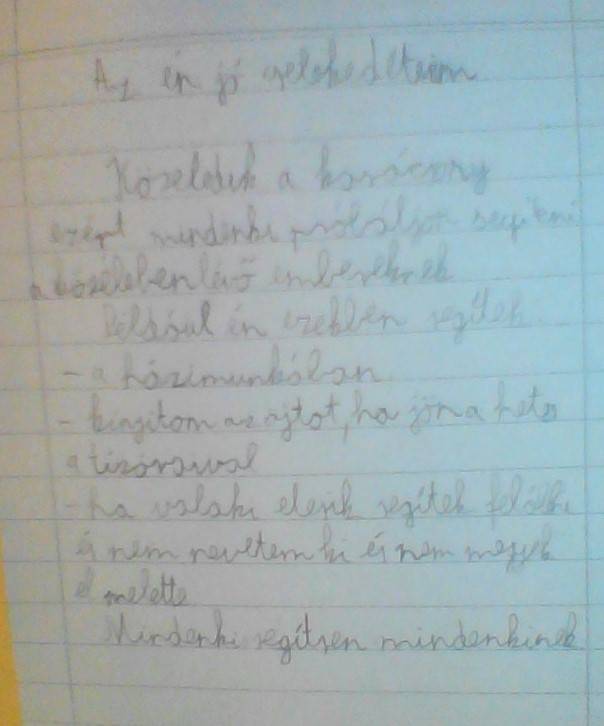 Az én jó cselekedeteim
Közeledik a karácsony
ezért mindenki próbáljon segíteni
a közelében lévő embereknek
Például én ezekben segítek
- a házimunkában
- kinyitom az ajtót, ha jön a hetes
a tízóraival
- ha valaki elesik segítek felállni
és nem nevetem ki és nem megyek
el melette
Mindenki segítsen mindenkinek